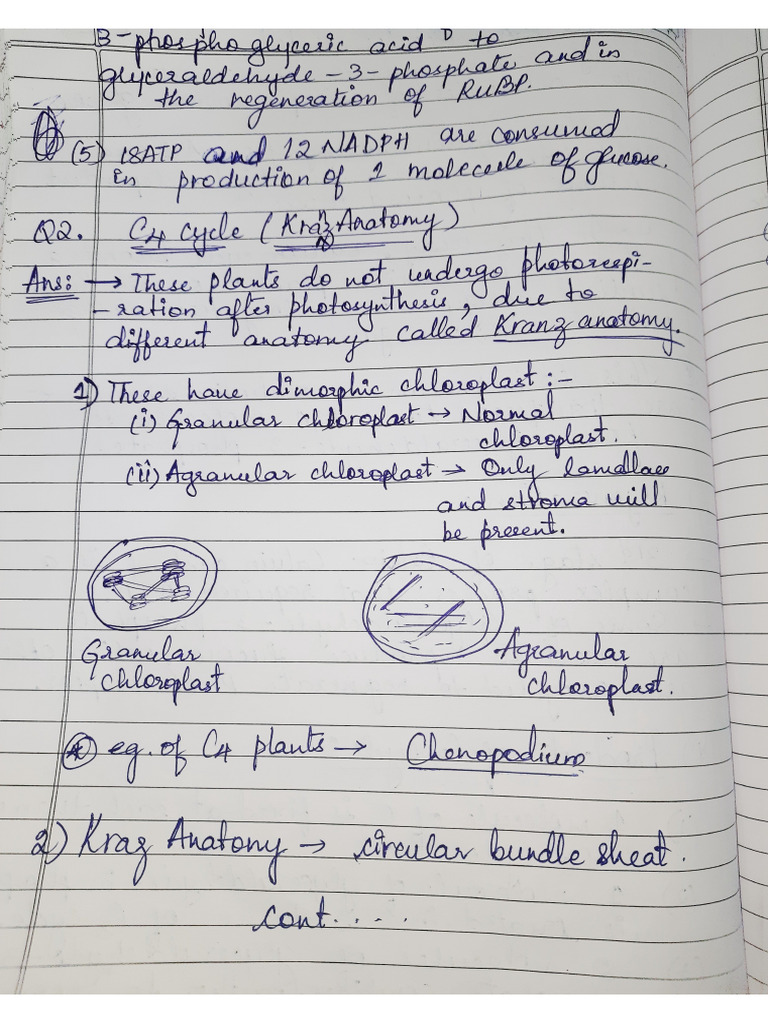 3-phospho glyceric acid to
glyceraldehyde-3-phosphate and in
the regeneration of RuBP.
(5) 18ATP and 12 NADPH are consumed
in production of 1 molecule of glucose.
Q2. C4 cycle (Kranz Anatomy)
Ans: → These plants do not undergo photorespi-
-ration after photosynthesis, due to
different anatomy called Kranz anatomy.
1) These have dimorphic chloroplast :-
(i) Granular chloroplast → Normal
chloroplast.
(ii) Agranular chloroplast → Only lamellae
and stroma will
be present.
Granular
chloroplast
Agranular
chloroplast.
eg. of C4 plants → Chenopodium
2) Kraz Anatony → circular bundle sheat.
cont.....